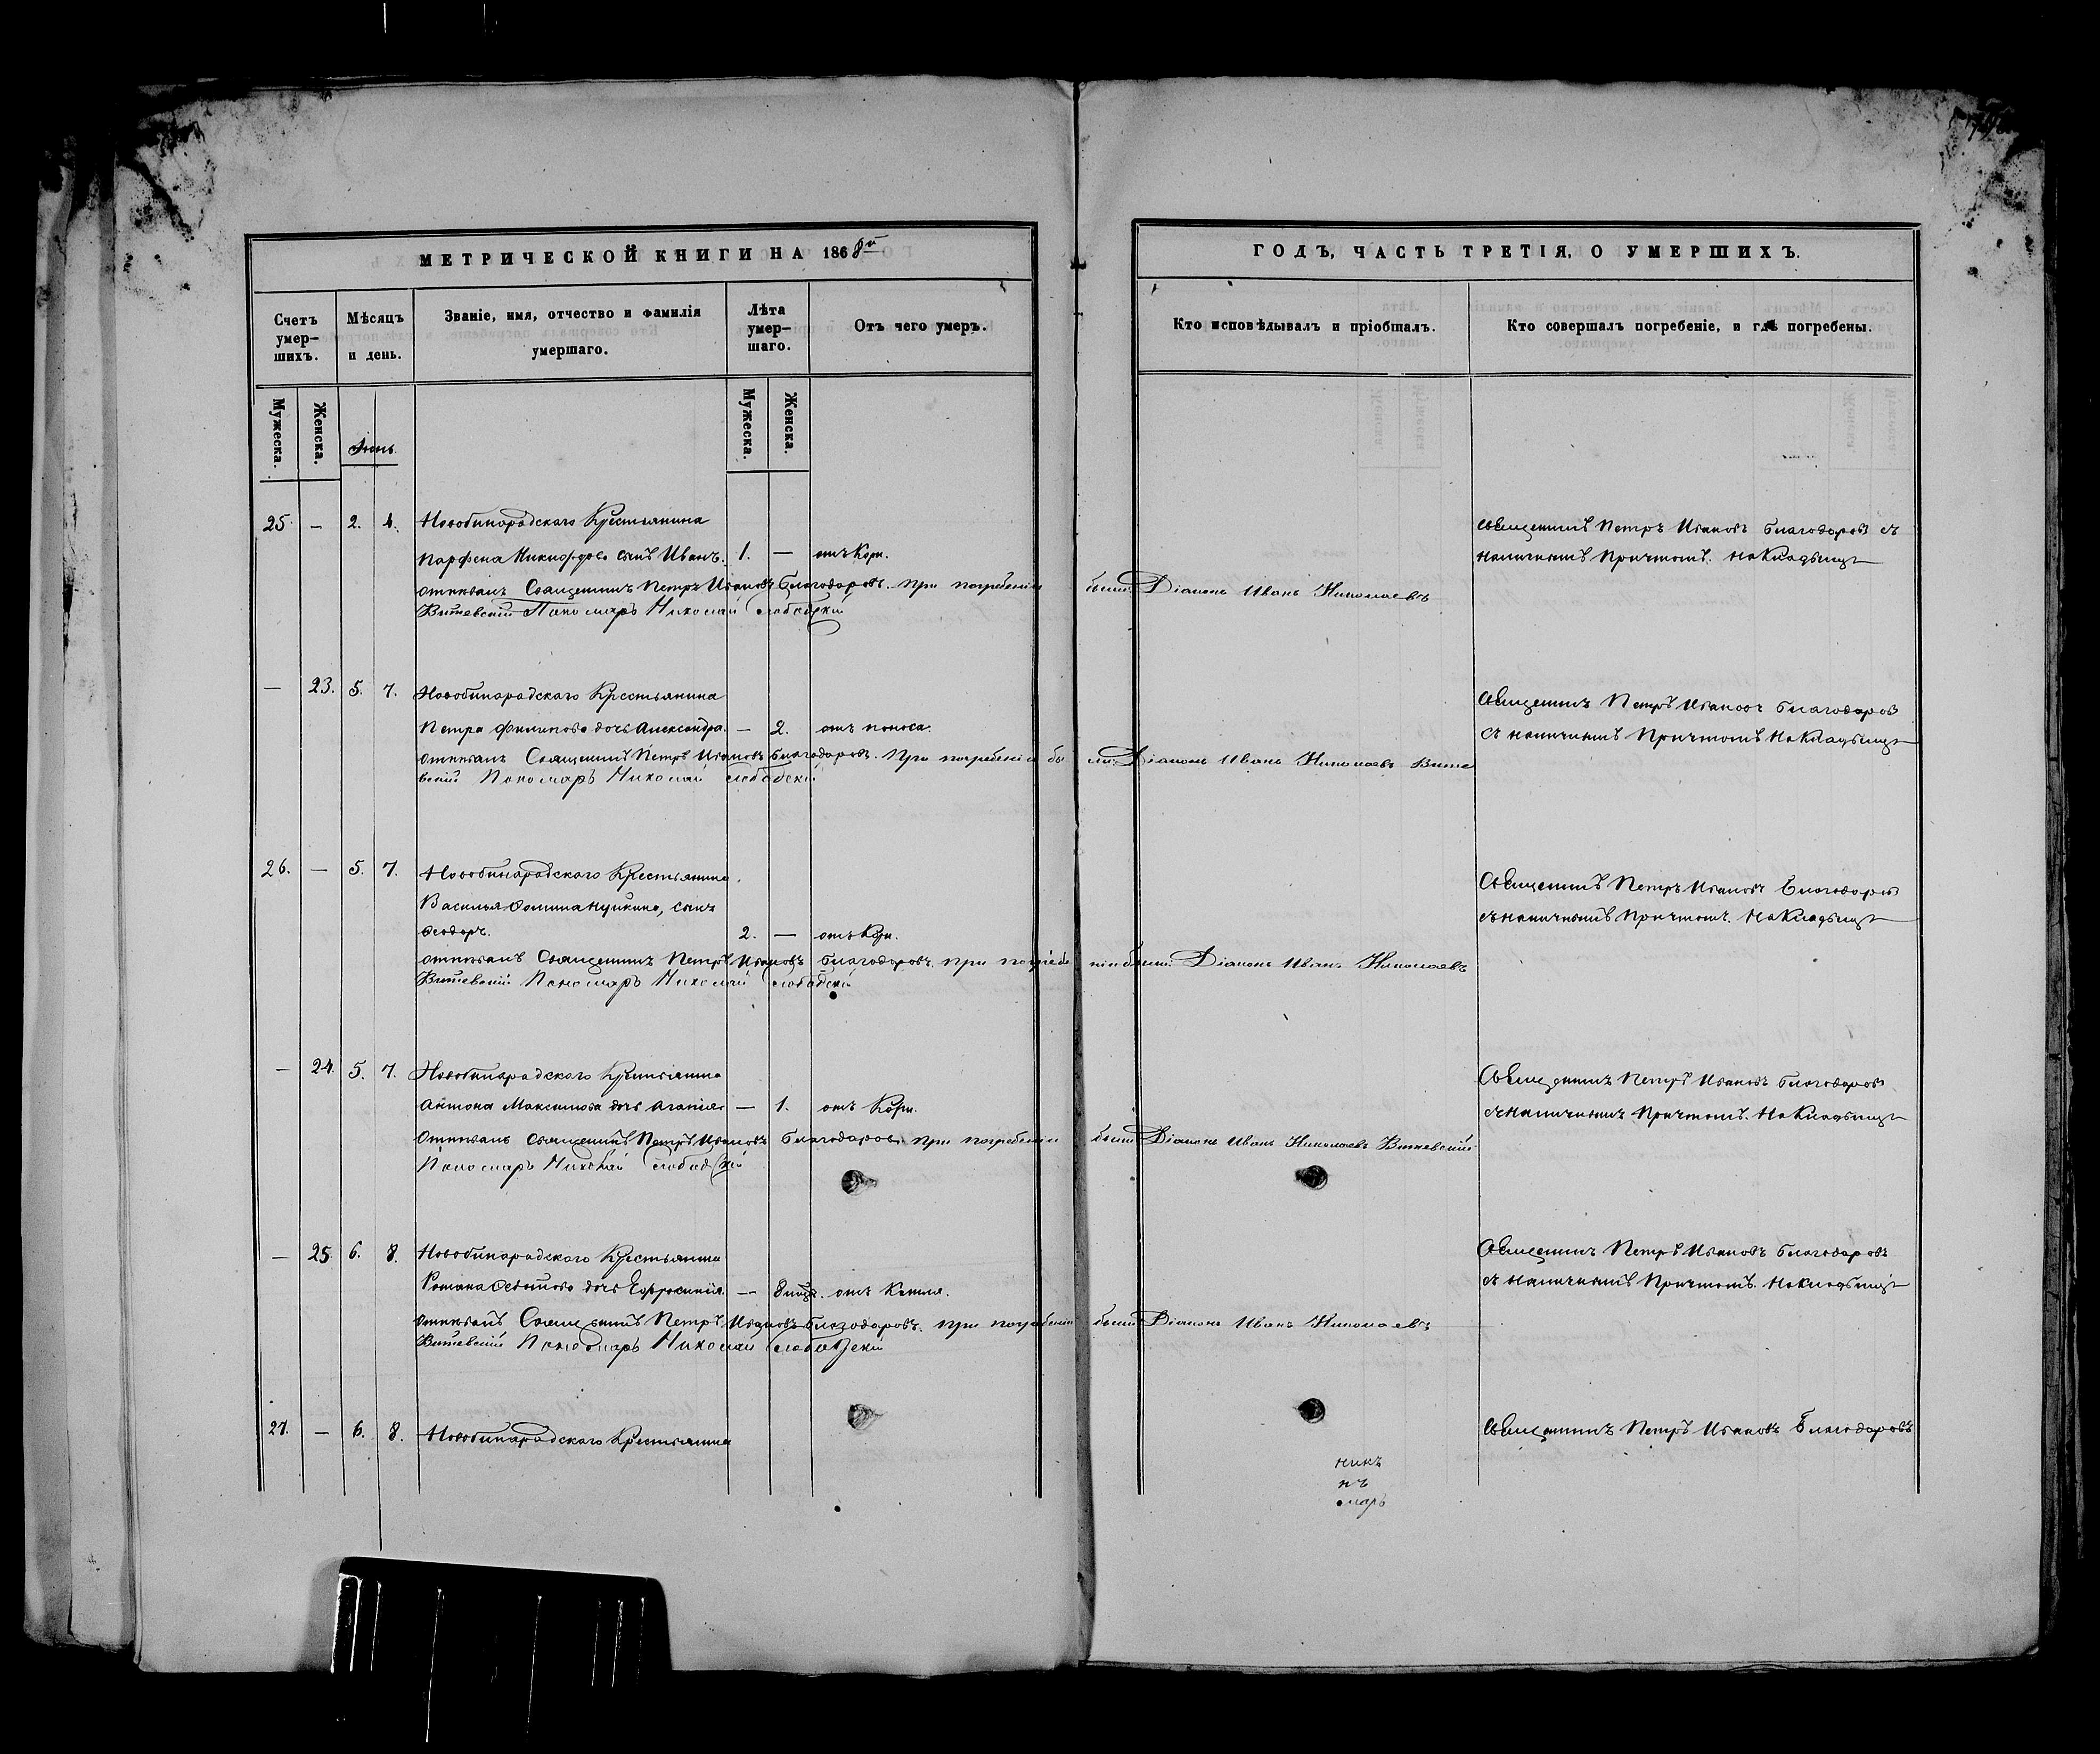 МЕТРИЧЕСКОЙ КНИГИ НА 1868й
ГОДЪ, ЧАСТЬ ТРЕТІЯ, О УМЕРШИХЪ.
Счетъ умер-
шихъ.
Мѣсяцъ
и день.
Званіе, имя, отчество и фамилія
умершаго.
Лѣта
умер-
шаго.
Отъ чего умеръ.
Кто исповѣдывалъ и пріобщалъ.
Кто совершалъ погребеніе, и гдѣ погребены.
Мужеска.
Женска.
Іюнь.
Мужеска.
Женска.
25. — 2. 4. Новобинарадскаго Крестьянина
Парфена Никифорова сынъ Иванъ. 1. — отъ Кори.
Священникъ Петръ Ивановъ Благодаровъ съ
наличнымъ Причтомъ. На Кладбищѣ
отпѣвалъ Священникъ Петръ Ивановъ Благодаровъ. При погребеніи были: Діаконъ Иванъ Николаевъ
Витевскій Пономарь Николай Слободскій
— 23. 5. 7. Новобинарадскаго Крестьянина
Петра Филипова дочь Александра. — 2. отъ поноса.
Священникъ Петръ Ивановъ Благодаровъ
съ наличнымъ Причтомъ На Кладбищѣ
отпѣвалъ Священникъ Петръ Ивановъ Благодаровъ. При погребеніи были: Діаконъ Иванъ Николаевъ Вите
вскій Пономарь Николай Слободскій
26. — 5. 7. Новобинарадскаго Крестьянина
Василья Фомина сынъ
Ѳеодоръ. 2. — отъ Кори.
Священникъ Петръ Ивановъ Благодаровъ
съ наличнымъ Причтомъ. На Кладбищѣ
отпѣвалъ Священникъ Петръ Ивановъ Благодаровъ. При погребеніи были: Діаконъ Иванъ Николаевъ
Витевскій Пономарь Николай Слободскій
— 24. 5. 7. Новобинарадскаго Крестьянина
Антона Максимова дочь Агапія — 1. отъ Кори.
Священникъ Петръ Ивановъ Благодаровъ
съ наличнымъ Причтомъ. На Кладбищѣ
Отпѣвалъ Священникъ Петръ Ивановъ Благодаровъ. При погребеніи были: Діаконъ Иванъ Николаевъ Витевскій
Пономарь Николай Слободскій
— 25. 6. 8. Новобинарадскаго Крестьянина
Романа дочь Ефросинія. — 8 отъ Кашля.
Священникъ Петръ Ивановъ Благодаровъ
съ наличнымъ Причтомъ. На Кладбищѣ
Отпѣвалъ Священникъ Петръ Ивановъ Благодаровъ. При погребеніи были: Діаконъ Иванъ Николаевъ
Витевскій Пономарь Николай Слободскій
27. — 6. 8. Новобинарадскаго Крестьянина
Священникъ Петръ Ивановъ Благодаровъ
никъ
нъ
омарь